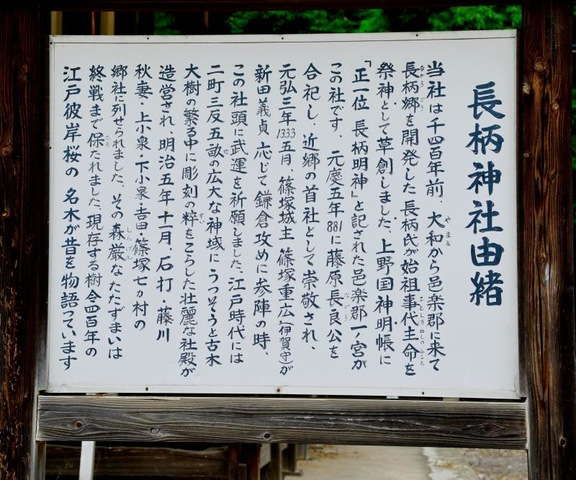 長柄神社由緒
当社は千四百年前、大和から邑楽郡に来て
長柄郷を開発した長柄氏が始祖事代主命を
祭神として草創しました。上野国神明帳に
「正一位 長柄明神」と記された邑楽郡一ノ宮が
この社です。元慶五年881に藤原長良公を
合祀し、近郷の首社として崇敬され、
元弘三年1333五月、篠塚城主 篠塚重広(伊賀守)が
新田義貞に応じて鎌倉攻めに参陣の時、
この社頭に武運を祈願しました。江戸時代には
二町三反五畝の広大な神域にうっそうと古木
大樹の繁る中に彫刻の粋をこらした壮麗な社殿が
造営され、明治五年十一月、石打・藤川
秋妻・上小泉・下小泉・吉田・篠塚七ヵ村の
郷社に列せられました。その森厳なたたずまいは
終戦まで保たれました。現存する樹令四百年の
江戸彼岸桜の名木が昔を物語っています